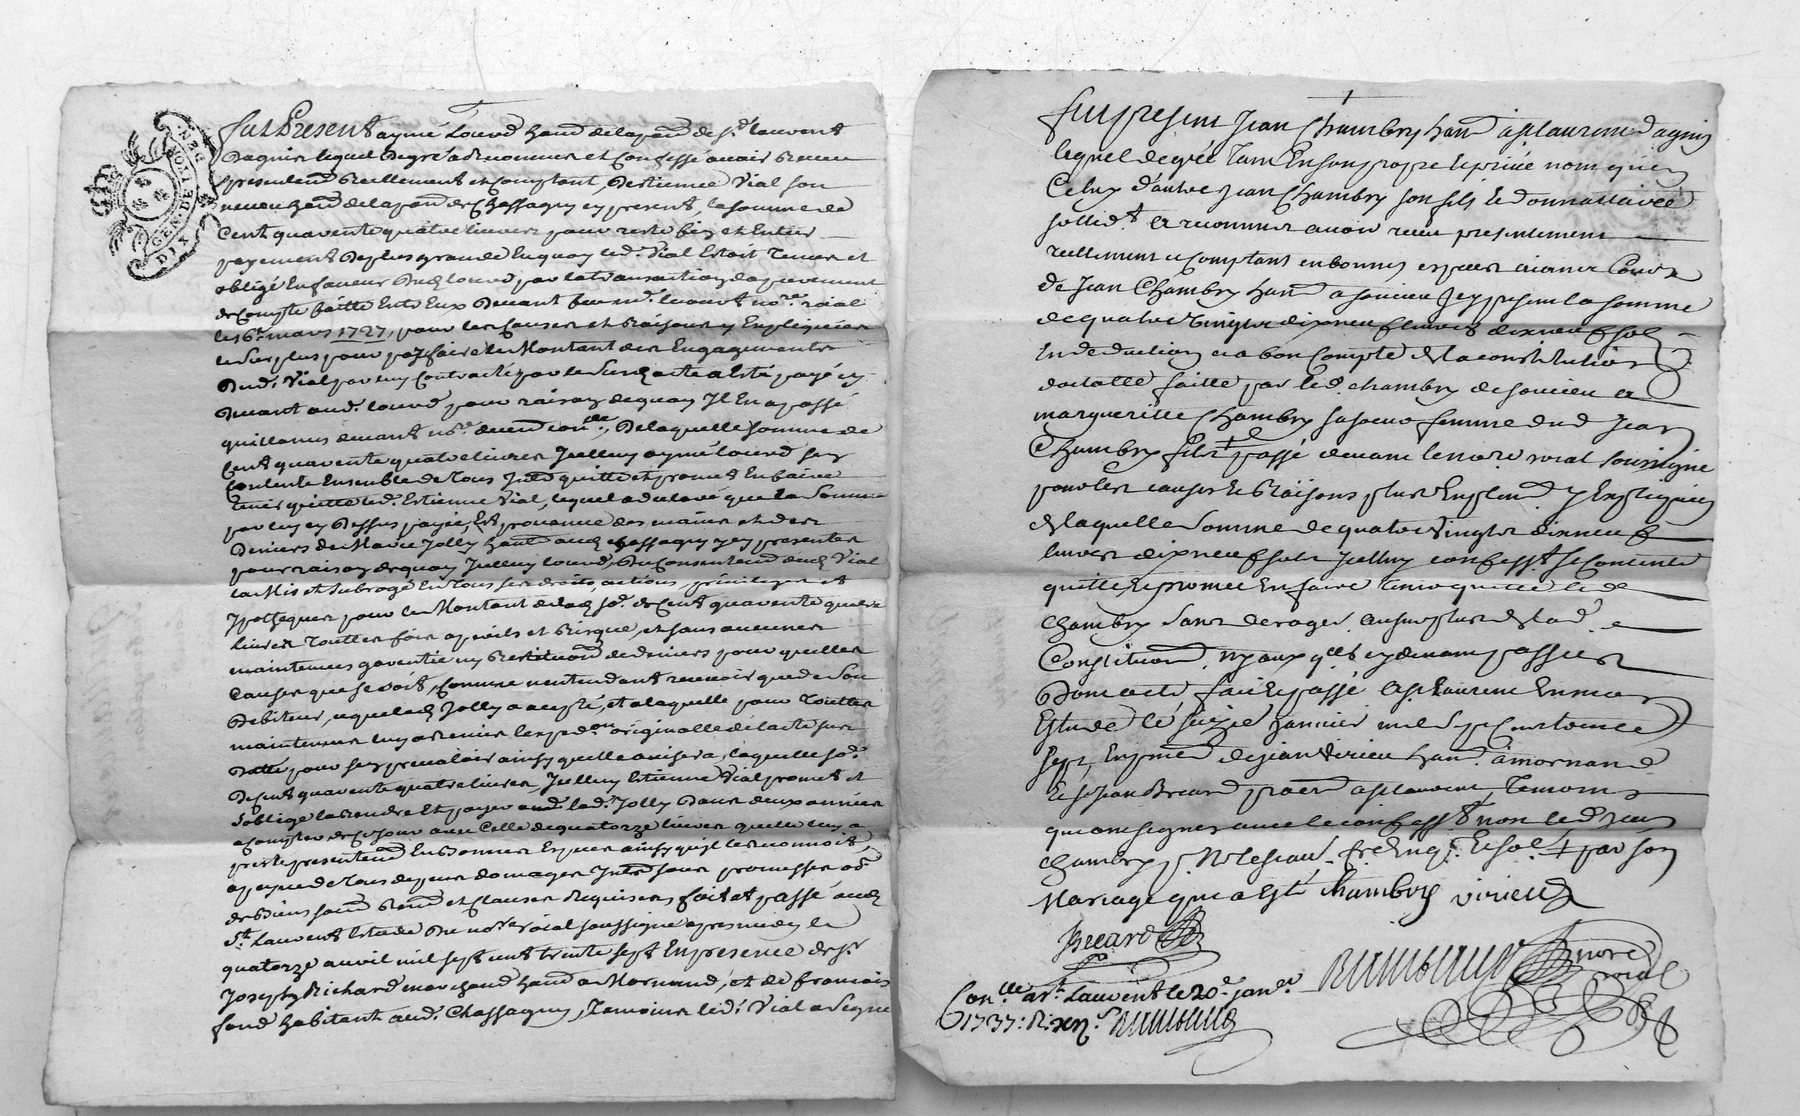 GEN. DE LYON
DIX DEN
Fut Present aymé Louvd habt. de la parr. de st. Laurent
Daguin lequel De gré a Reconneu et Confessé avoir Receu
presentemt. Reellement et Comptant, D'estienne Vial son
neveu habt. de la parr. de Chassagny cy present, la somme de
Cent quarente quatre livres pour reste fin et Entier
payement De plus grande En quoy led. Vial Estoit Tenu et
obligé En faveur Dud. Louvd par la transaction
de Compte faitte Entr'Eux Devant nore. roial
le 6e. mars 1727, pour les Causes et Raisons y Expliquées
le Surplus pour parfaire le Montant des Engagements
Dud. Vial par luy Contractés par le Susd. acte a Esté payé cy
Devant aud. Louvd pour raison de quoy Il En a passé
quittances devant nore. , De laquelle somme de
Cent quarente quatre livres Jcelluy aymé Louvd s'est
Contenté Ensemble de Tous quitte et promet En faire
tenir quitte led. Estienne Vial, lequel a declaré que la Somme
par luy cy Dessus payée, Est provenue des mains et des
Deniers de Marie Jolly habt. aud. Chassagny icy presente
pour raison de quoy Jcelluy Louvd, Du Consentemt. dud. Vial
la Mis et Subrogé En Tous ses droits, actions, privileges et
Jpotheques pour le Montant de lad. so. de Cent quarente quatre
livres Touttes fois a perils et Risque, et sans aucunes
maintenues garentie ny Restitutiond de deniers pour quelles
Causes que se soit, Comme n'entendant recevoir que de son
Debiteur, ce que lad. Jolly a accepté, et a laquelle pour Touttes
maintenues luy a remis l'expedon. originalle de l'acte sus
Datté pour s'en prevaloir ainsy quelle avisera, laquelle so.
De Cent quarente quatre livres Jcelluy Estienne Vial promet et
s'oblige la rendre Et payer a lad. Jolly Dans deux années
a Compter de Ce Jour avec Celle de quatorze livres quelle luy a
presté presentemt. En Bonnes Especes ainsy qu'il le reconnoit,
a peyne de Tous depens domages Jnts. sous promesses ob.
de Biens soumd. Renond. et Clauses Requises fait et passé aud.
st. Laurent Estude Du nore. roial soussigné apres midy le
quatorze avril mil sept cent trente sept En presence de sr.
Joseph Richard marchand habt. a Mornand, et de francois
fond habitant aud. Chassagny, Temoins led. Vial a Signé
Fut present Jean Chambry habt. a st laurent d'agnin
lequel de gré Tant En son propre et privé nom qu'en
Celuy d'autre Jean Chambry son fils Et donnataire
a reconneu avoir receu presentement
reellement et Comptant en bonnes especes
de Jean Chambry habt. a soucieu Jcy present la somme
de quatre vingts dix neuf livres dix neuf sols
En deduction et a bon Compte de la constitution
dotalle faitte par led. Chambry de soucieu et
margueritte Chambry sa soeur femme dud. Jean
Chambry fils passé devant le nore. roial soussigné
pour les causes Et Raisons plus Emplemt. y Expliquées
de laquelle Somme de quatre Vingts dix neuf
livres dix neuf sols Jcelluy confesst. se contente
quitte Et promet En faire tenir quitte led.
Chambry Sans deroger au surplus de lad.
Constitutiond. ny aux qces. cy devant passées
Dont acte fait Et passé a st Laurent En mon
Estude le seizie. Janvier mil Sept Cent trente
Sept, En presce. de Jean Virieu habt. a mornand
Et sr Jean Breard prat. a st laurent, Temoins
qui ont signés avec le confesst. non led. Jean
Chambry
Mariage qui a Esté Chambry virieu
Breard
nore. roial
Conlle. a st. Laurent le 20e. janer.
1737: R.